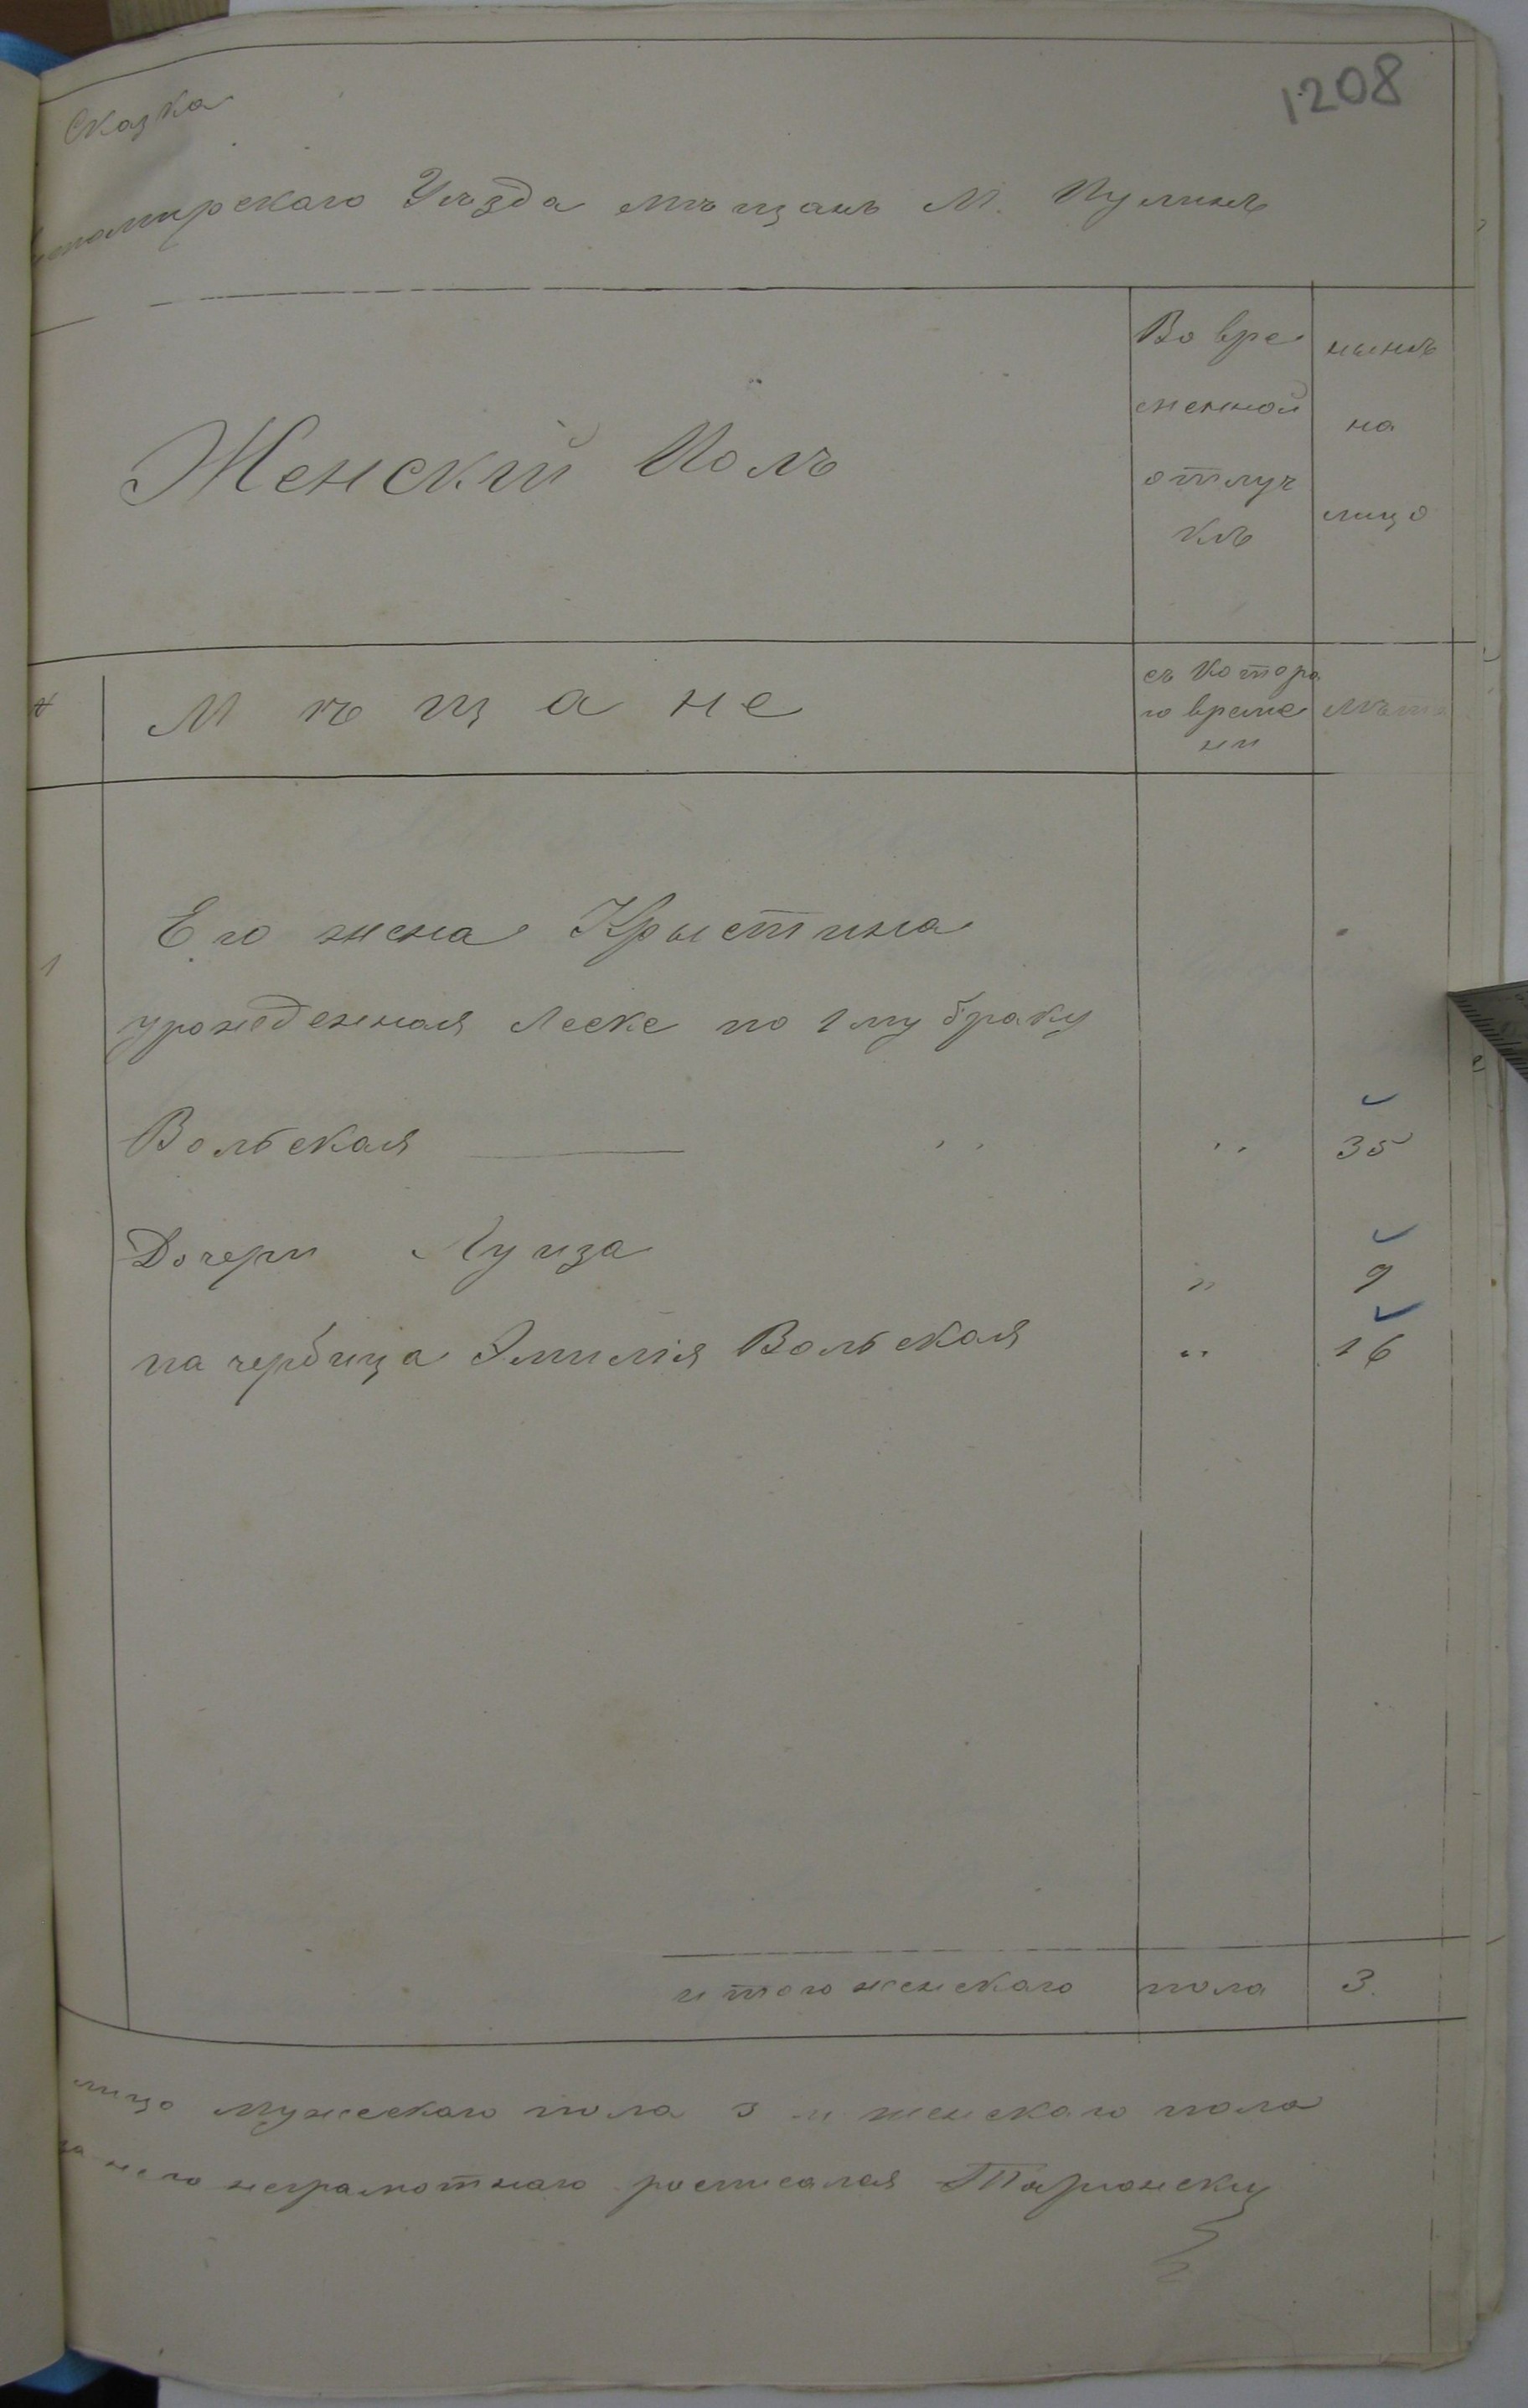 1208
Сказка
томирскаго Уѣзда мѣщанъ М. Пулинъ
Женскій Полъ
Во вре
менной
отлуч
кѣ
нынѣ
на
лицо
Мѣщане
съ котора
го време
ни
лѣта
1
Его жена Крыстина
урожеденная Леске по 1му браку
Вольская " " 35
Дочери Луиза " 9
падчерица Эмилія Вольская " 16
итого женскаго пола 3.
лицо мужескаго пола 3 и женскаго пола
за него неграмотнаго росписался